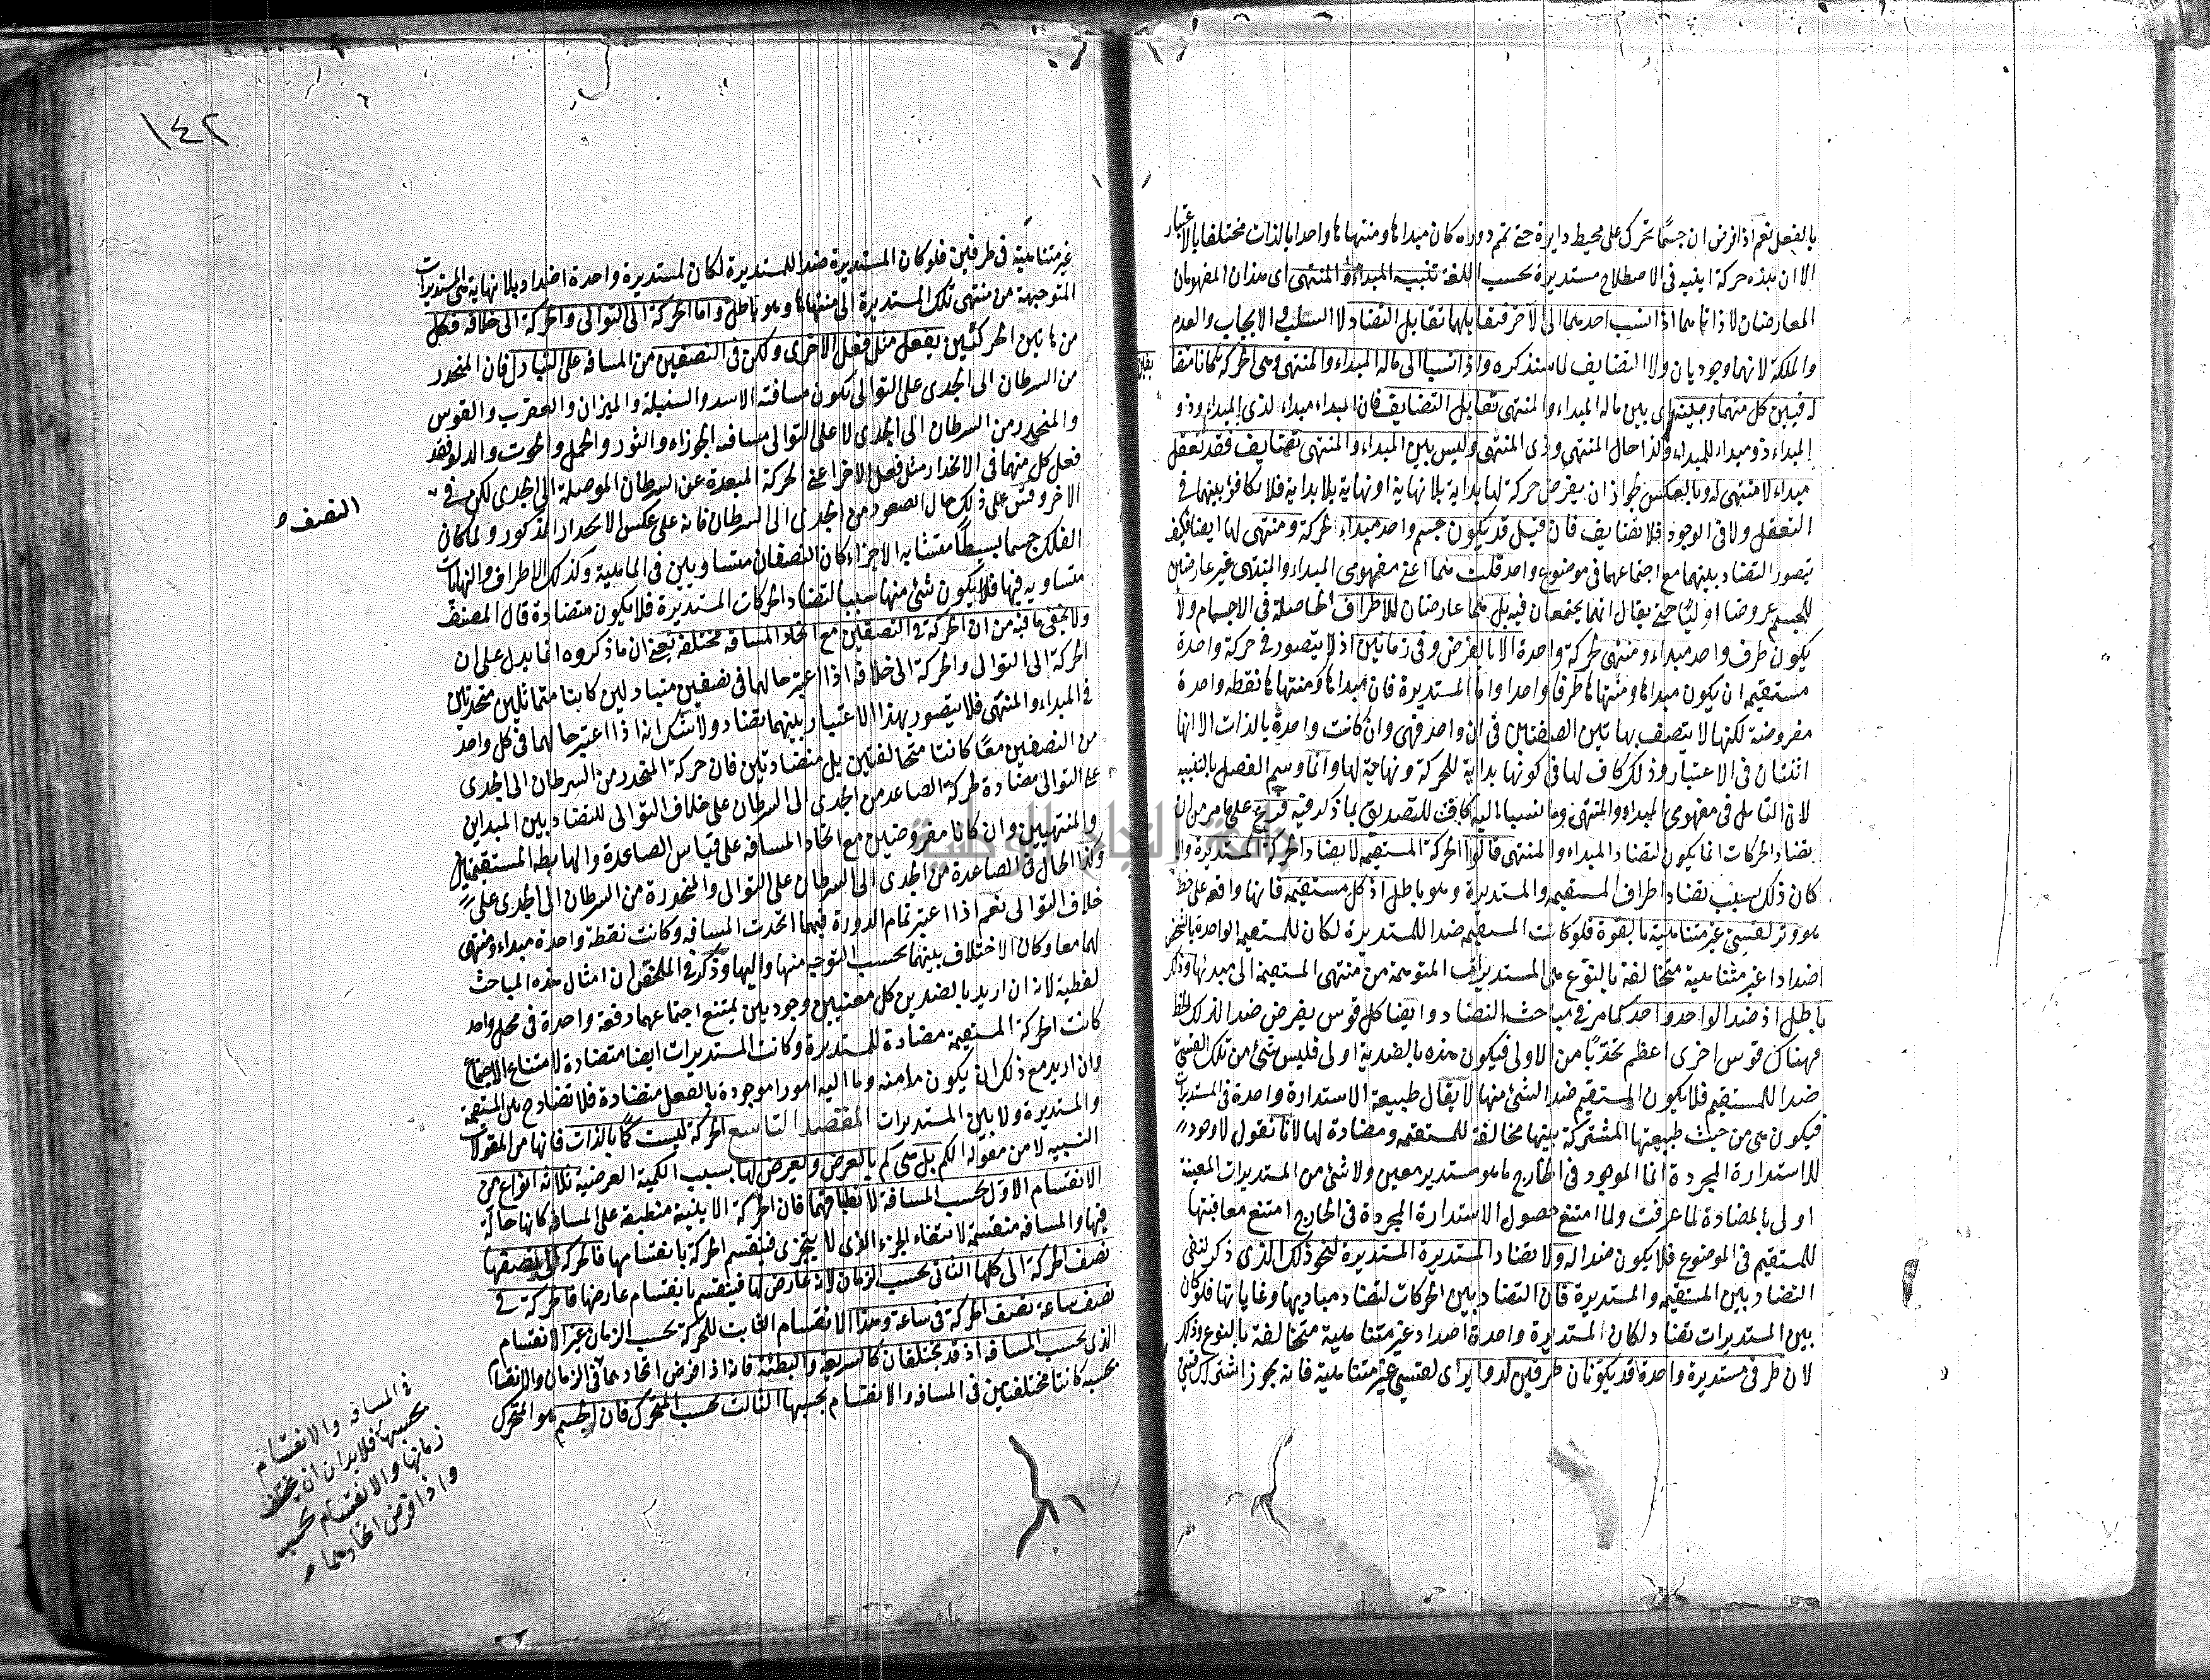 بالفعل نعم اذا فرض ان جسمًا تحرك على محيط دايرة حتى تم دوراه كان مبداها ومنتهاها واحدا بالذات مختلفا بالاعتبار
الا ان هذه حركة اينيه فى الاصطلاح مستديرة بحسب اللغة تنبيه المبداء والمنتهى اى هذان المفهومان
المعارضان لذاتهما اذا نسب احدهما الى الاخر فتقابلهما تقابل التضاد لا السلب والايجاب والعدم
والملكة لانهما وجوديان ولا التضايف لما سنذكره واذا نسبا الى ماله المبداء والمنتهى وهى الحركة كانا متضا
يفين
له فبين كل منهما وبين ماله المبداء والمنتهى تقابل التضايف فان المبداء مبداء لذى المبداء وذو
المبداء ذو مبداء للمبداء وكذا حال المنتهى وذى المنتهى وليس بين المبداء والمنتهى تضايف فقد تعقل
مبداء لا منتهى له وبالعكس لجواز ان يفرض حركة لها بداية بلا نهاية او نهاية بلا بداية فلا تكافؤ بينهما فى
التعقل ولا فى الوجود فلا تضايف فان قيل قد يكون جسم واحد مبداء لحركة ومنتهى لها ايضا فكيف
يتصور التضاد بينهما مع اجتماعهما فى موضوع واحد قلت هما اعنى مفهومى المبداء والمنتهى غير عارضين
للجسم عروضا اوليًا حتى يقال انهما يجتمعان فيه بل هما عارضان للاطراف الحاصلة فى الاجسام ولا
يكون طرف واحد مبداء ومنتهى لحركة واحدة الا بالفرض وفى زمانين اذ لا يتصور فى حركة واحدة
مستقيمه ان يكون مبداها ومنتهاها طرفا واحدا واما المستديرة فان مبداها ومنتهاها نقطه واحدة
مفروضة لكنها لا يتصف بهاتين الصفتين فى ان واحد فهى وان كانت واحدة بالذات الا انها
اثنتان فى الاعتبار وذلك كاف لها فى كونها بداية للحركة ونهاية لها وانما وسم الفصل بالتنبيه
لان التامل فى مفهومى المبداء والمنتهى وما نسبا اليه كاف للتصديق بما ذكر فيه على ما مر من ان
تضاد الحركات انما يكون لتضاد المبداء والمنتهى قالوا الحركة المستقيمه لا يضاد الحركة المستديرة والا
كان ذلك بسبب تضاد اطراف المستقيمه والمستديرة وهو باطل اذ كل مستقيمه فانها واقعه على خط
هو وتر لقسى غير متناهية بالقوة فلو كانت المستقيمه ضدا للمستديرة لكان للمستقيمه الواحدة بالشخص
اضدادا غير متناهية متخالفة بالنوع هى المستديرات المتوجهة من منتهى المستقيمة الى مبدئها وذلك
باطل اذ ضد الواحد واحد كما مر فى مباحث التضاد وايضا كل قوس يفرض ضدا لذلك الخط
فهناك قوس اخرى اعظم تحدّبًا من الاولى فيكون هذه بالضدية اولى فليس شئ من تلك القسىّ
ضدا للمستقيم فلا يكون المستقيم ضد الشئ منها لا يقال طبيعة الاستدارة واحدة فى المستديرات
فيكون هى من حيث طبيعتها المشتركة بينها مخالفة للمستقيمه ومضادة لها لانا نقول لا وجود
للاستدارة المجردة انما الموجود فى الخارج ما هو مستدير معين ولا شئ من المستديرات المعينة
اولى بالمضادة لما عرفت ولما امتنع حصول الاستدارة المجردة فى الخارج امتنع معاقبتها
للمستقيم فى الموضوع فلا يكون ضدا له ولا تضاد المستديرة المستديرة لنحو ذلك الذى ذكر لنفى
التضاد بين المستقيمه والمستديرة فان التضاد بين الحركات لتضاد مباديها وغاياتها فلو كان
بين المستديرات تضاد لكان المستديرة واحدة اضداد غير متناهية متخالفة بالنوع وذلك
لان طرفى مستديرة واحدة قد يكونان طرفين لدواير اى لقسى غير متناهية فانه يجوز اشتراك قسىّ
١٤٢
غير متناهيّة فى طرفين فلو كان المستديرة ضدا للمستديرة لكان لمستديرة واحدة اضداد بلا نهاية هى المستديرات
المتوجهة من منتهى تلك المستديرة الى منتهاها وهو باطل واما الحركة الى التوالى والحركة الى خلافه فكل
من هاتين الحركتين يفعل مثل فعل الاخرى ولكن فى النصفين من المسافه على التبادل فان المنحدر
من السرطان الى الجدى على التوالى يكون مسافته الاسد والسنبلة والميزان والعقرب والقوس
والمنحدر من السرطان الى الجدى لا على التوالى مسافه الجوزاء والثور والحمل والحوت والدلو فقد
فعل كل منهما فى الانحدار مثل فعل الاخر اعنى الحركة المبعدة عن السرطان الموصلة الى الجدى لكن فى
النصف
الاخر وقس على ذلك حال الصعود من الجدى الى السرطان فانه على عكس الانحدار المذكور ولما كان
الفلك جسما بسيطًا متشابه الاجزاء كان النصفان متساويين فى الماهية وكذلك الاطراف والنهايات
متساويه فيها فلا يكون شئ منها سببا لتضاد الحركات المستديرة فلا يكون متضادة قال المصنف
ولا يخفى ما فيه من ان الحركة فى النصفين مع اتحاد المسافه مختلفة يعنى ان ما ذكروه انما يدل على ان
الحركة الى التوالى والحركة الى خلافه اذا اعتبر حالهما فى نصفين متبادلين كانتا متماثلين متحدتين
فى المبداء والمنتهى فلا يتصور بهذا الاعتبار بينهما تضاد ولا شك انه اذا اعتبر حالهما فى كل واحد
من النصفين معًا كانتا متخالفتين بل متضادتين فان حركة المنحدر من السرطان الى الجدى
على التوالى مضادة لحركة الصاعد من الجدى الى السرطان على خلاف التوالى للتضاد بين المبداين
والمنتهيين وان كانا مفروضين مع اتحاد المسافه على قياس الصاعدة والهابطه المستقيمتين
وكذا الحال فى الصاعدة من الجدى الى السرطان على التوالى والمنحدرة من السرطان الى الجدى على
خلاف التوالى نعم اذا اعتبر تمام الدورة فيهما اتحدت المسافه وكانت نقطة واحدة مبداء ومنتهى
لهما معا وكان الاختلاف بينهما بحسب التوجه منها واليها وذكر فى الملخص ان امثال هذه المباحث
لفظية لانه ان اريد بالضدين كل معنيين وجوديين يمتنع اجتماعهما دفعة واحدة فى محل واحد
كانت الحركة المستقيمة مضادة للمستديرة وكانت المستديرات ايضا متضادة لامتناع الاجتماع
وان اريد مع ذلك ان يكون ما منه وما اليه امورا موجودة بالفعل متضادة فلا تضاد ح بين المستقيمة
والمستديرة ولا بين المستديرات المقصد التاسع الحركة ليست كمًا بالذات فانها من المقولات
النسبيه لا من مقوله الكم بل هى كم بالعرض ويعرض لها بسبب الكمية العرضية ثلاثة انواع من
الانقسام الاول بحسب المسافة لانطباقهما فان الحركة الاينية منطبقة على المسافه كانها حالّة
فيها والمسافه منقسمة لانتفاء الجزء الذى لا يتجزى فينقسم الحركة بانقسامها فالحركة الى نصفها
نصف الحركة الى كلها الثانى بحسب الزمان لانه عارض لها فينقسم بانقسام عارضها فالحركة فى
نصف ساعة نصف الحركة فى ساعة وهذا الانقسام الثابت للحركة بحسب الزمان غير الانقسام
الذى بحسب المسافه اذ قد يختلفان كالسريعة والبطئة فانه اذا فرض اتحادهما فى الزمان والانقسام
بحسبه كانتا مختلفتين فى المسافه والانقسام بحسبها الثالث بحسب المتحرك فان الجسم هو المتحرك
فى المسافه والانقسام
بحسبها فلا بد ان يختلف
زمانها والانقسام بحسبه
واذا فرض اتحادهما